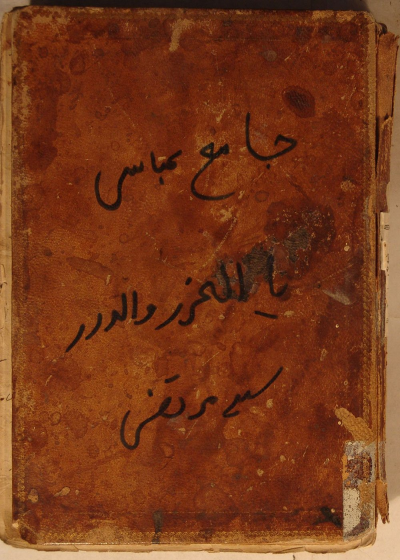 جامع عباسی
یا الغرر والدرر
سید مرتضی